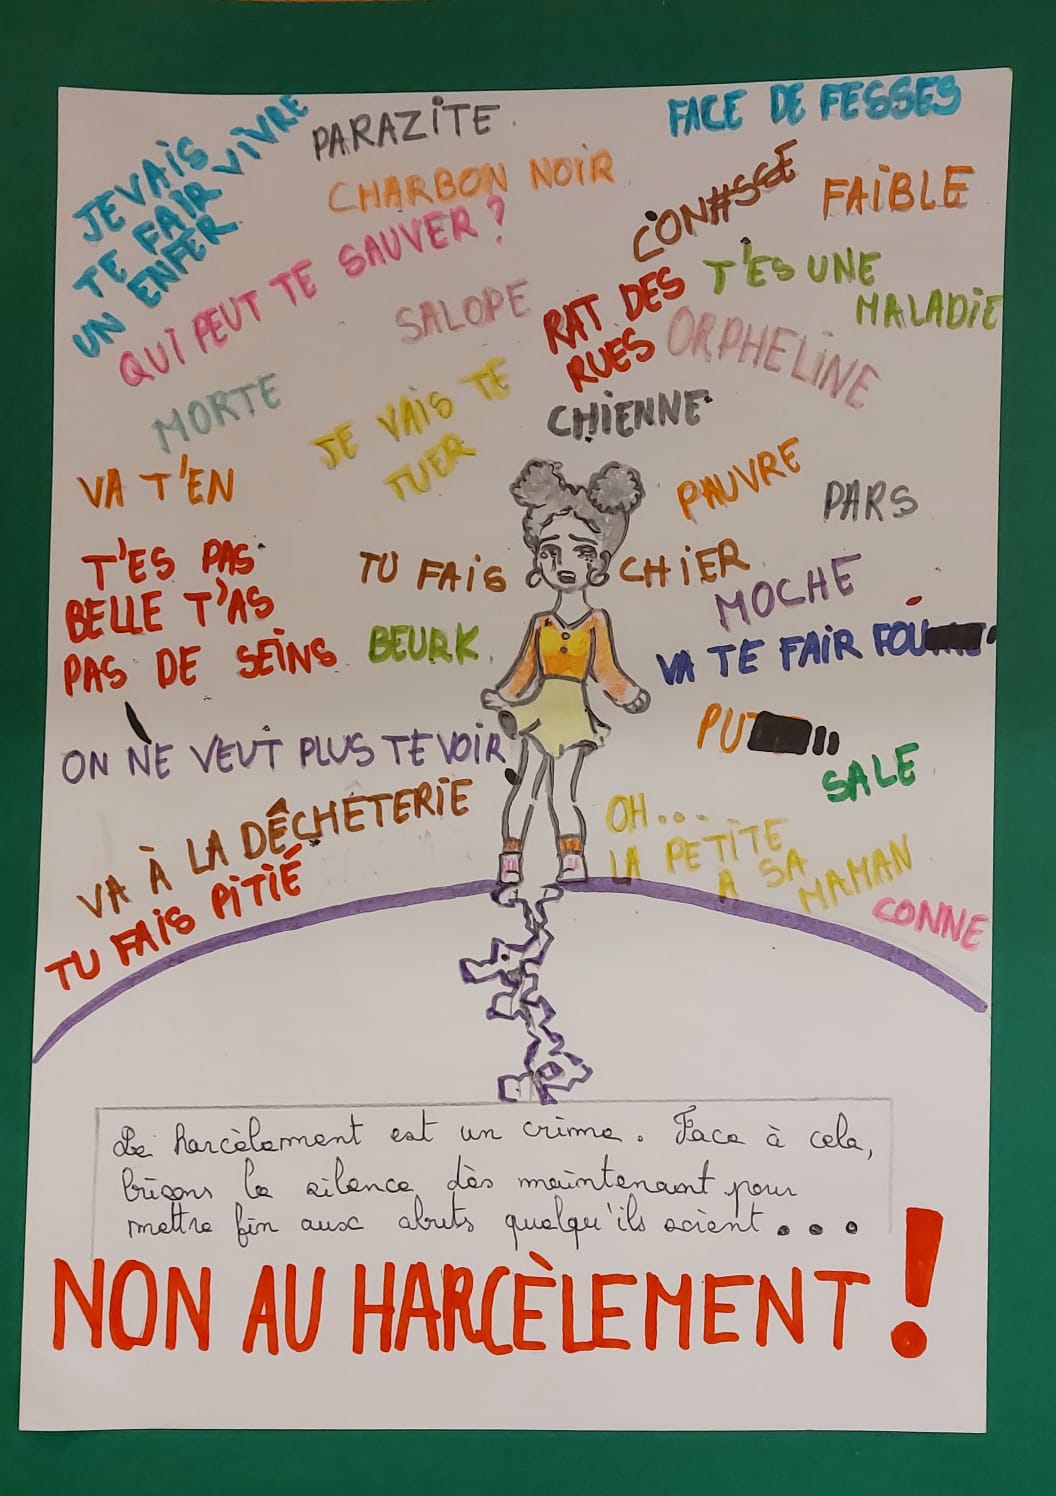 JE VAIS
TE FAIR VIVRE
UN ENFER
PARAZITE
FACE DE FESSES
CHARBON NOIR
CON#SSE
FAIBLE
QUI PEUT TE SAUVER ?
SALOPE
RAT DES
RUES
T'ES UNE
MALADIE
ORPHELINE
MORTE
JE VAIS TE
TUER
CHIENNE
VA T'EN
PAUVRE
PARS
T'ES PAS
BELLE T'AS
PAS DE SEINS
TU FAIS CHIER
MOCHE
BEURK
VA TE FAIR FOU
ON NE VEUT PLUS TE VOIR
PU
SALE
VA À LA DÊCHÈTERIE
TU FAIS PITIÉ
OH...
LA PETITE
A SA
MAMAN
CONNE
Le harcèlement est un crime. Face à cela,
brisons le silence dès maintenant pour
mettre fin aux abuts quelqu'ils soient...
NON AU HARCÈLEMENT !